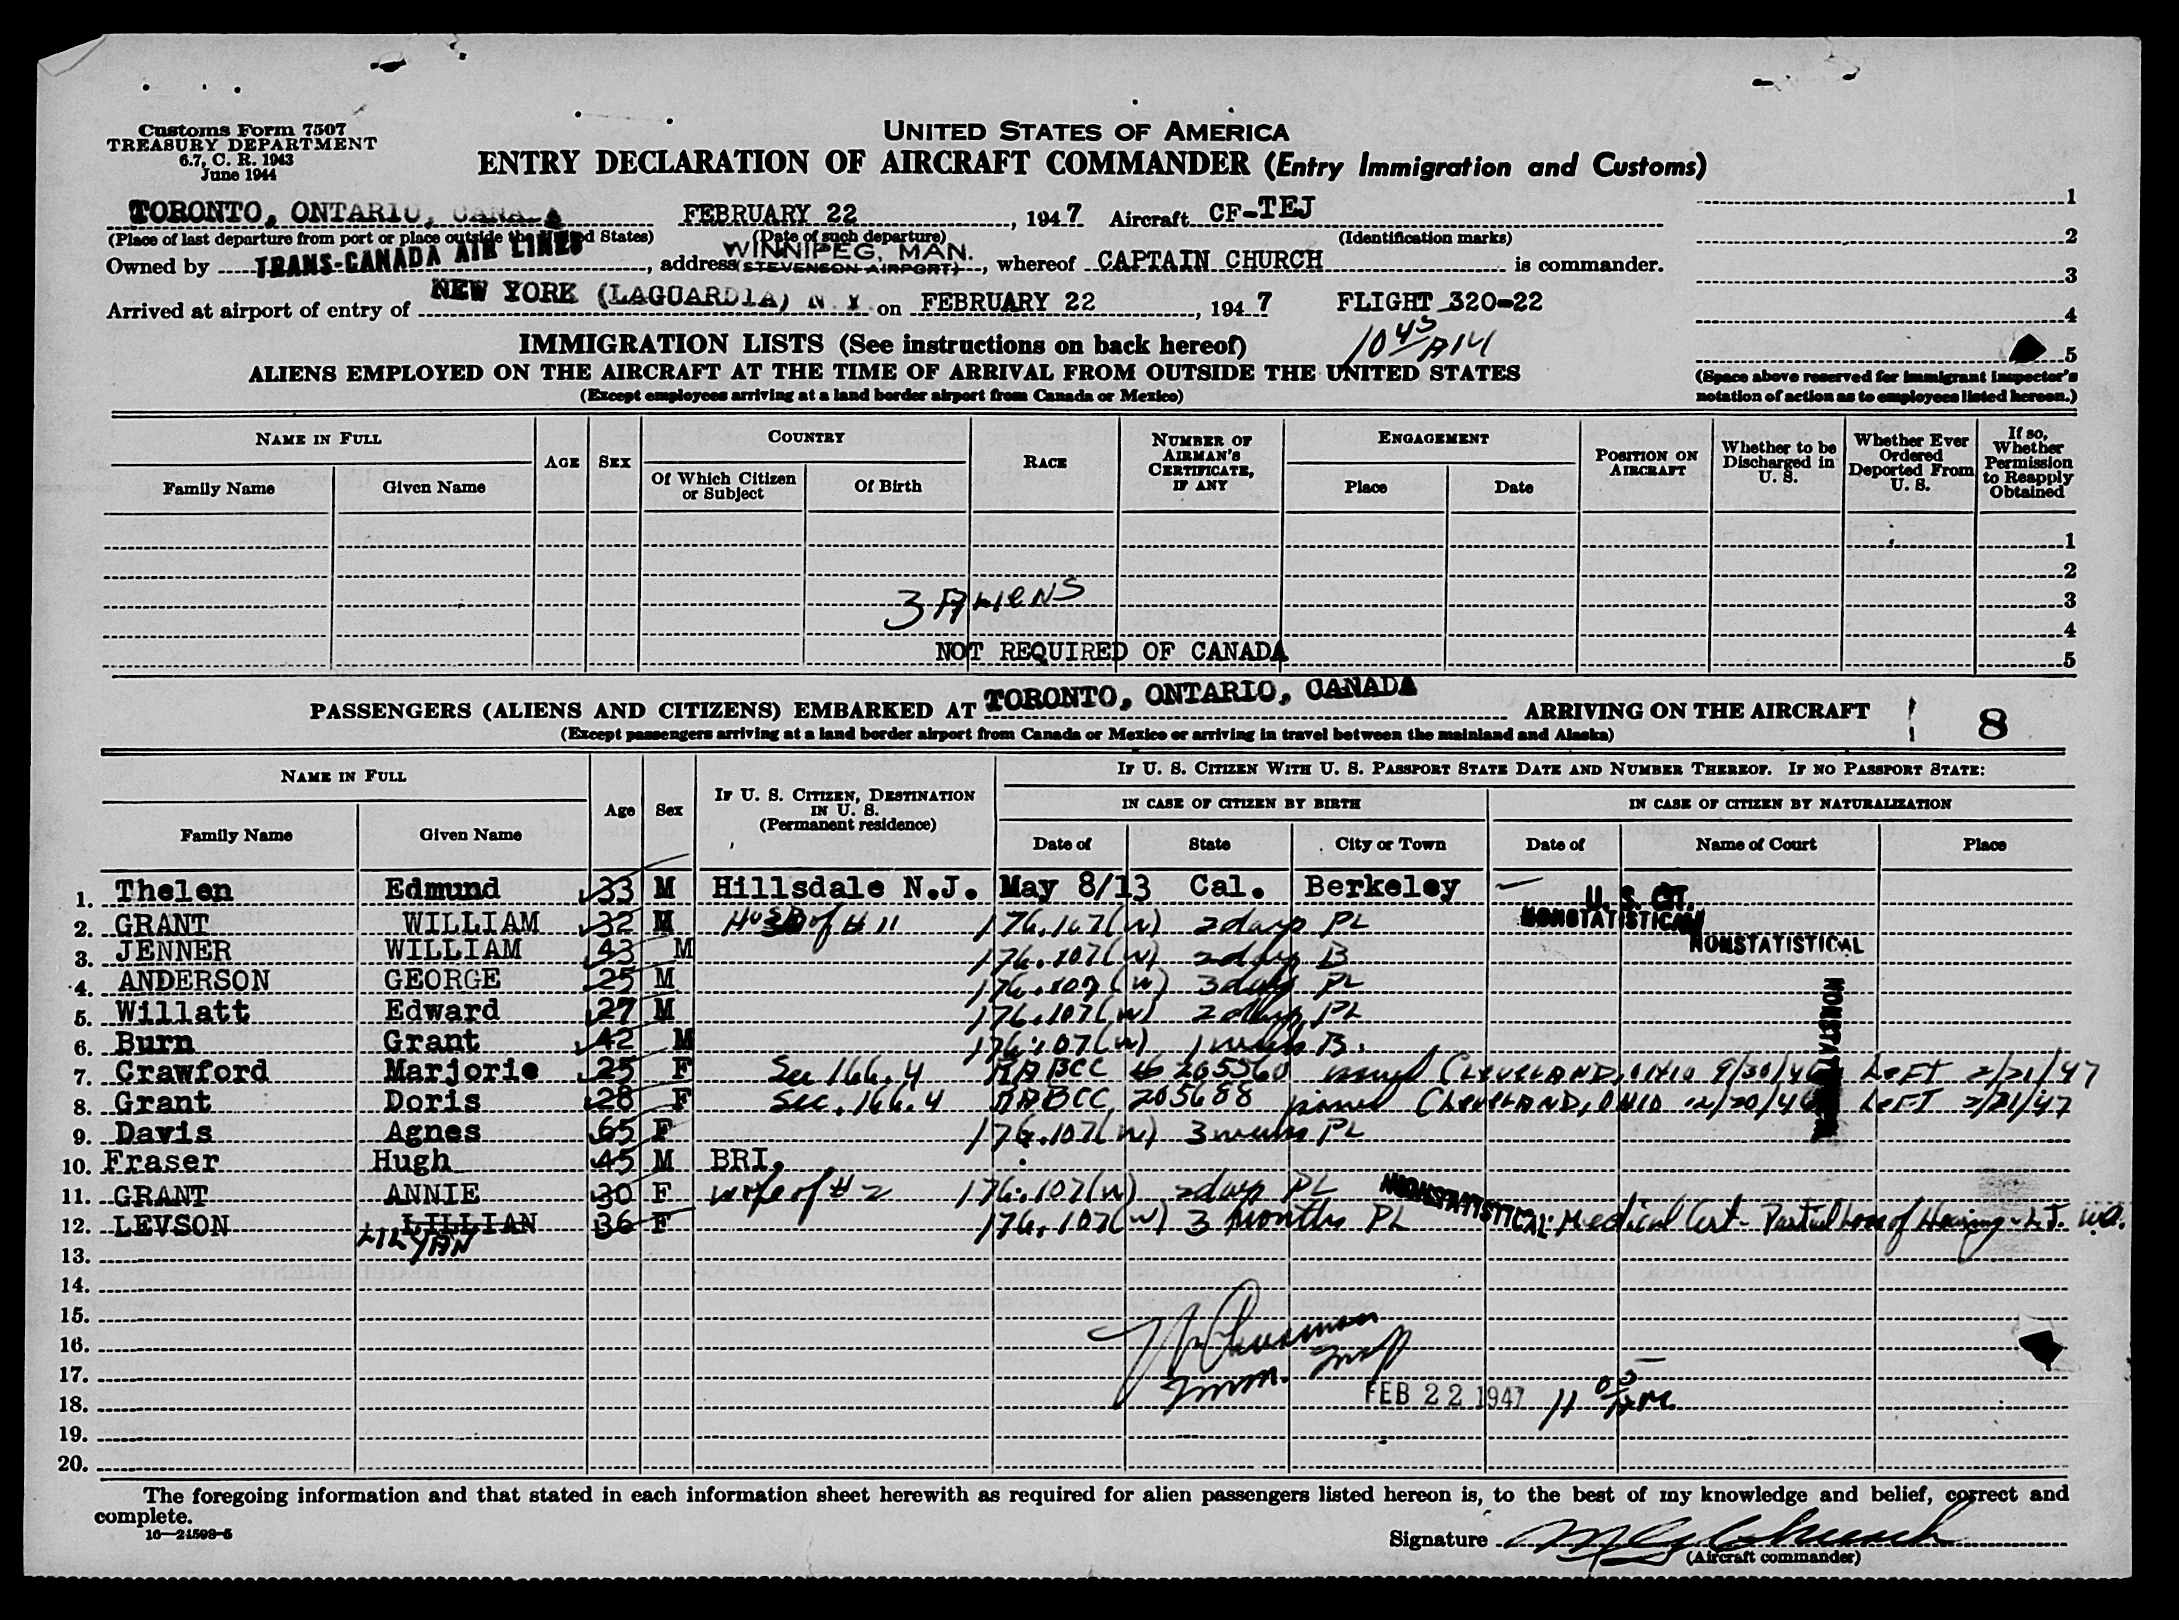 Customs Form 7507
TREASURY DEPARTMENT
6.7, C. R. 1943
June 1944
UNITED STATES OF AMERICA
ENTRY DECLARATION OF AIRCRAFT COMMANDER (Entry Immigration and Customs)
TORONTO, ONTARIO, CANADA FEBRUARY 22, 1947 Aircraft CF-TEJ 1
(Place of last departure from port or place outside the United States) (Date of such departure) (Identification marks) 2
WINNIPEG, MAN.
Owned by TRANS-CANADA AIR LINES, address (STEVENSON AIRPORT), whereof CAPTAIN CHURCH is commander. 3
Arrived at airport of entry of NEW YORK (LAGUARDIA) N. Y. on FEBRUARY 22, 1947 FLIGHT 320-22 4
IMMIGRATION LISTS (See instructions on back hereof) 10 45 AM 5
ALIENS EMPLOYED ON THE AIRCRAFT AT THE TIME OF ARRIVAL FROM OUTSIDE THE UNITED STATES
(Except employees arriving at a land border airport from Canada or Mexico)
(Space above reserved for immigrant inspector's
notation of action as to employees listed hereon.)
NAME IN FULL AGE SEX COUNTRY RACE NUMBER OF AIRMAN'S CERTIFICATE, IF ANY ENGAGEMENT POSITION ON AIRCRAFT Whether to be Discharged in U. S. Whether Ever Ordered Deported From U. S. If so, Whether Permission to Reapply Obtained
Family Name Given Name Of Which Citizen or Subject Of Birth Place Date
1
2
3 ALIENS 3
4
NOT REQUIRED OF CANADA 5
PASSENGERS (ALIENS AND CITIZENS) EMBARKED AT TORONTO, ONTARIO, CANADA ARRIVING ON THE AIRCRAFT 8
(Except passengers arriving at a land border airport from Canada or Mexico or arriving in travel between the mainland and Alaska)
NAME IN FULL Age Sex IF U. S. CITIZEN, DESTINATION IN U. S. (Permanent residence) IF U. S. CITIZEN WITH U. S. PASSPORT STATE DATE AND NUMBER THEREOF. IF NO PASSPORT STATE:
IN CASE OF CITIZEN BY BIRTH IN CASE OF CITIZEN BY NATURALIZATION
Family Name Given Name Date of State City or Town Date of Name of Court Place
1. Thelen Edmund 33 M Hillsdale N.J. May 8/13 Cal. Berkeley U. S. CIT.
2. GRANT WILLIAM 32 M Husb of # 11 176.107(W) 2 days PL NONSTATISTICAL
3. JENNER WILLIAM 43 M 176.107(W) 2 days B NONSTATISTICAL
4. ANDERSON GEORGE 25 M 176.107(W) 3 days PL
5. Willatt Edward 27 M 176.107(W) 2 days PL
6. Burn Grant 42 M 176.107(W) 1 B. NONSTATISTICAL
7. Crawford Marjorie 25 F Sec 166.4 RABCC # 205560 issued CLEVELAND, OHIO 9/30/46 LEFT 2/21/47
8. Grant Doris 28 F Sec. 166.4 RABCC 205688 issued CLEVELAND, OHIO 12/20/46 LEFT 2/21/47
9. Davis Agnes 65 F 176.107(W) 3 weeks PL
10. Fraser Hugh 45 M BRI.
11. GRANT ANNIE 30 F wife of # 2 176.107(W) 2 days PL NONSTATISTICAL
12. LEVSON LILLIAN 36 F 176.107(W) 3 months PL Medical Cert - Partial Loss of Hearing
LILYAN
13.
14.
15.
16.
17.
Imm. Insp
18. FEB 22 1947 11 05 AM
19.
20.
The foregoing information and that stated in each information sheet herewith as required for alien passengers listed hereon is, to the best of my knowledge and belief, correct and
complete.
16—24598-5
Signature Church
(Aircraft commander)